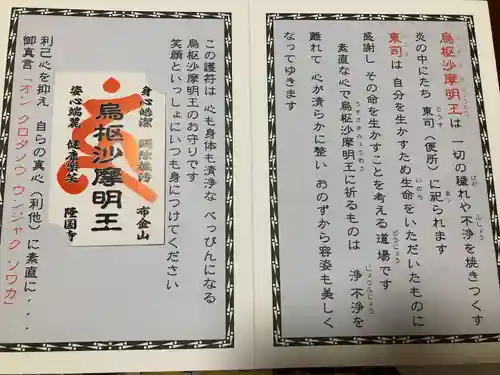 烏枢沙摩明王は 一切の穢れや不浄を焼きつくす
炎の中にたち 東司（便所）に祀られます
東司は 自分を生かすため生命をいただいたものに
感謝し その命を生かすことを考える道場です
素直な心で烏枢沙摩明王に祈るものは 浄不浄を
離れて 心が清らかに整い おのずから容姿も美しく
なってゆきます
この護符は 心も身体も清浄な べっぴんになる
烏枢沙摩明王のお守りです
笑顔といっしょにいつも身につけてください
身心皓潔
布金山
烏枢沙摩明王
姿心端麗 健康
隆国寺
利己心を抑え 自らの真心（利他）に素直に・・・
御真言「オン クロダノウ ウンジャク ソワカ」